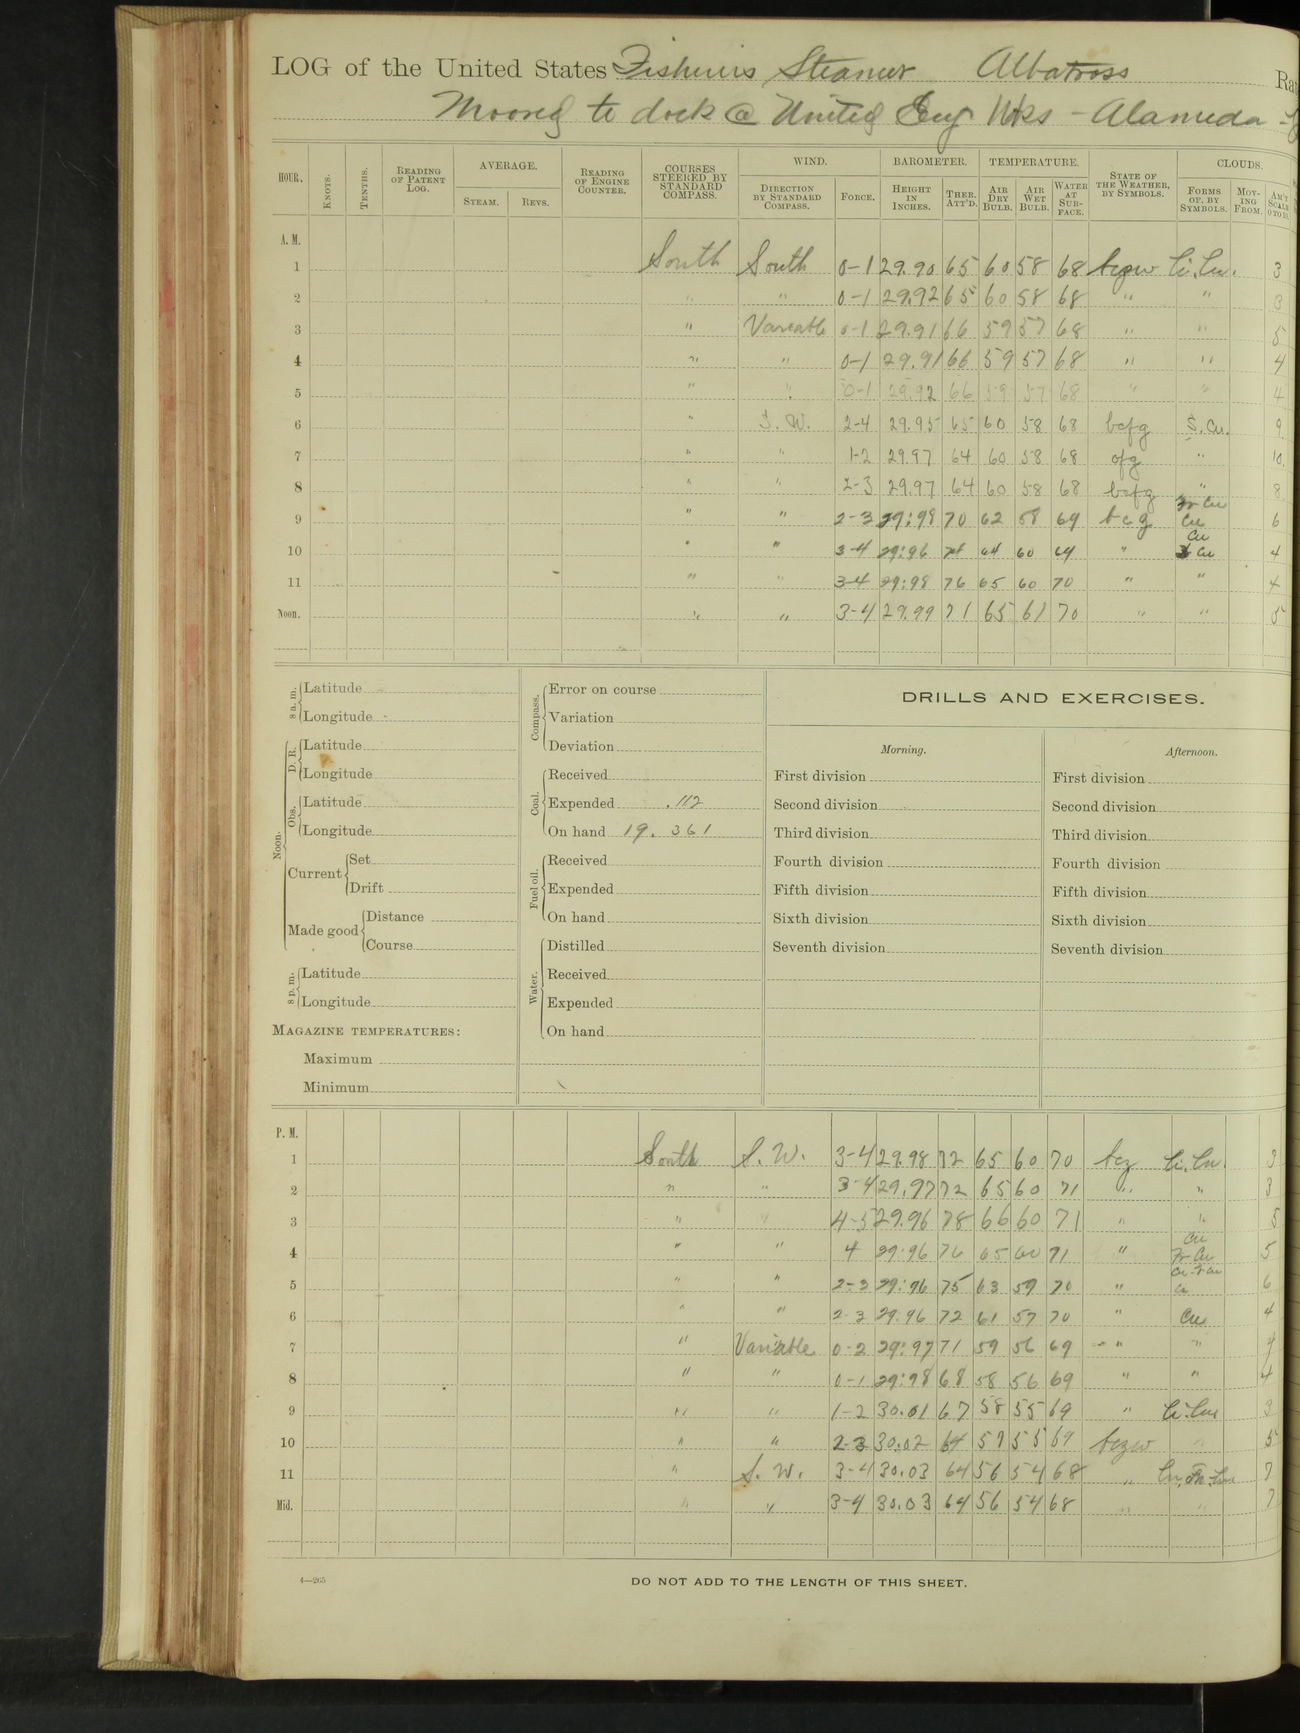 LOG of the United States Fisheries Steamer Albatross
Moored to dock @ United Eng Wks - Alameda -
HOUR. KNOTS. TENTHS. READING OF PATENT LOG. AVERAGE. STEAM. REVS. READING OF ENGINE COUNTER. COURSES STEERED BY STANDARD COMPASS. WIND. DIRECTION BY STANDARD COMPASS. FORCE. BAROMETER. HEIGHT IN INCHES. THER. ATT'D. TEMPERATURE. AIR DRY BULB. AIR WET BULB. WATER AT SURFACE. STATE OF THE WEATHER, BY SYMBOLS. CLOUDS. FORMS OF, BY SYMBOLS. MOVING FROM. AM'T SCALE 0 TO 10.
A. M.
1 South South 0-1 29.90 65 60 58 68 bczw Ci.Cu. 3
2 " " 0-1 29.92 65 60 58 68 " " 3
3 " Variable 0-1 29.91 66 59 57 68 " " 5
4 " " 0-1 29.91 66 59 57 68 " " 4
5 " " 0-1 29.92 66 59 57 68 " " 4
6 " S.W. 2-4 29.95 65 60 58 68 bcfg S.Cu. 9
7 " " 1-2 29.97 64 60 58 68 ofg " 10
8 " " 2-3 29.97 64 60 58 68 bcfg " 8
9 " " 2-3 29:98 70 62 58 69 bcg Fr Cu Cu 6
10 " " 3-4 29:96 74 64 60 69 " Cu Fr Cu 4
11 " " 3-4 29:98 76 65 60 70 " " 4
Noon. " " 3-4 29.99 71 65 61 70 " " 5
8 a. m. Latitude
Longitude
Noon. D. R. Latitude
Longitude
Obs. Latitude
Longitude
Current Set
Drift
Made good Distance
Course
8 p. m. Latitude
Longitude
MAGAZINE TEMPERATURES:
Maximum
Minimum
Compass. Error on course
Variation
Deviation
Coal. Received
Expended .112
On hand 19.361
Fuel oil. Received
Expended
On hand
Water. Distilled
Received
Expended
On hand
DRILLS AND EXERCISES.
Morning.
First division
Second division
Third division
Fourth division
Fifth division
Sixth division
Seventh division
Afternoon.
First division
Second division
Third division
Fourth division
Fifth division
Sixth division
Seventh division
P. M.
1 South S.W. 3-4 29.98 72 65 60 70 bcz Ci.Cu. 3
2 " " 3-4 29.97 72 65 60 71 " " 3
3 " " 4-5 29.96 78 66 60 71 " " 5
4 " " 4 29:96 76 65 60 71 " Cu Fr Cu 5
5 " " 2-3 29:96 75 63 59 70 " Cu Fr Cu 6
6 " " 2-3 29.96 72 61 57 70 " Cu 4
7 " Variable 0-2 29:97 71 59 56 69 " " 4
8 " " 0-1 29:98 68 58 56 69 " " 4
9 " " 1-2 30.01 67 58 55 69 " Ci.Cu 3
10 " " 2-3 30.02 64 57 55 69 bczw " 5
11 " S.W. 3-4 30.03 64 56 54 68 " Cu. Fr.Cu 7
Mid. " " 3-4 30.03 64 56 54 68 " " 7
4—265
DO NOT ADD TO THE LENGTH OF THIS SHEET.